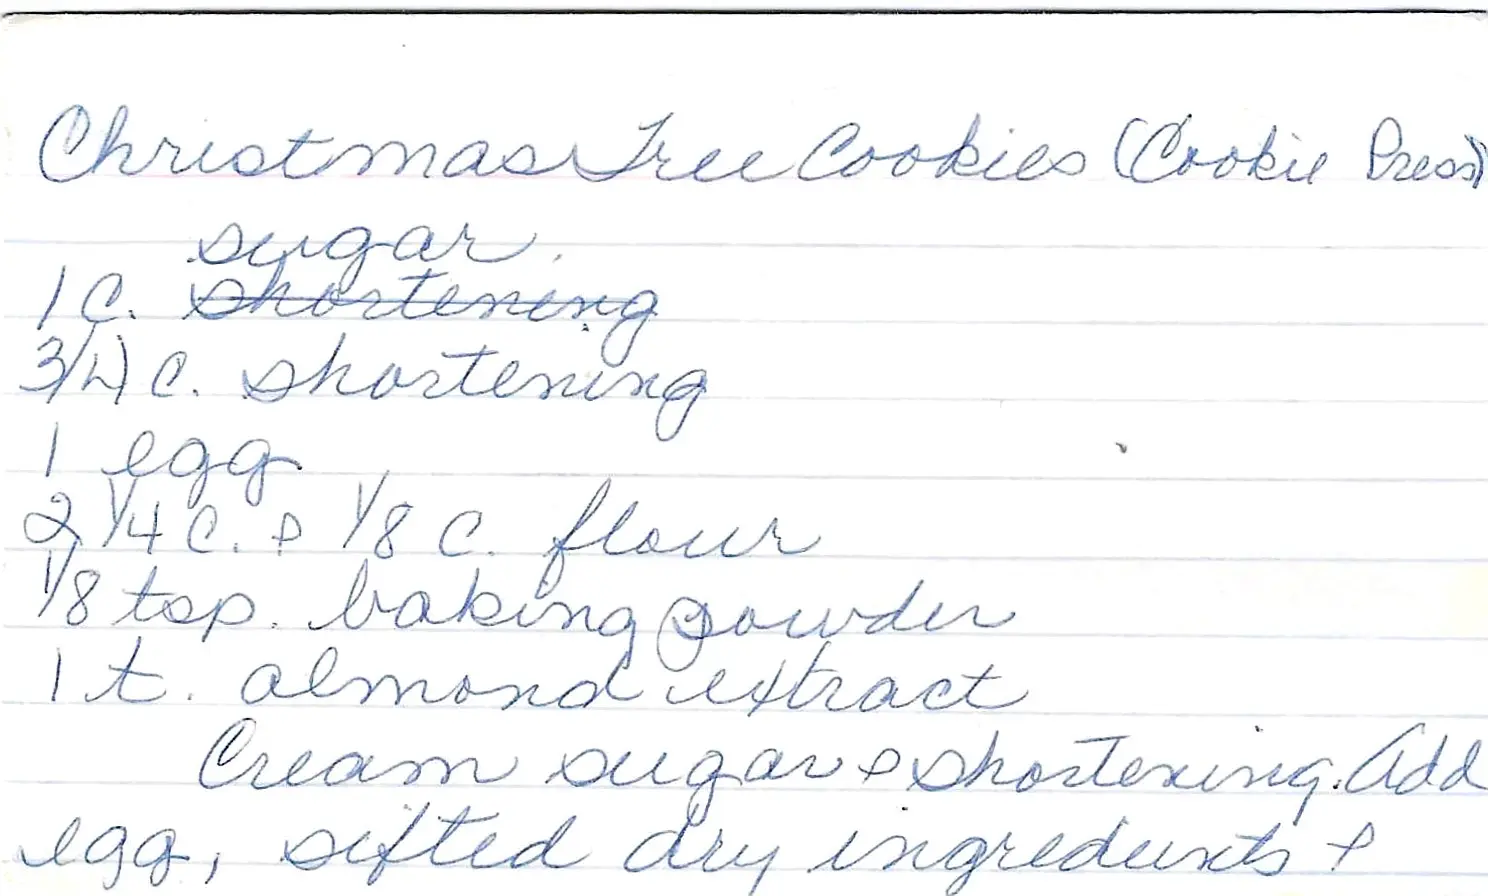 Christmas Tree Cookies (Cookie Press)
sugar
1 C. shortening
3/4 C. shortening
1 egg
2 1/4 C. & 1/8 C. flour
1/8 tsp. baking powder
1 t. almond extract
Cream sugar & shortening. Add
egg, sifted dry ingredients &